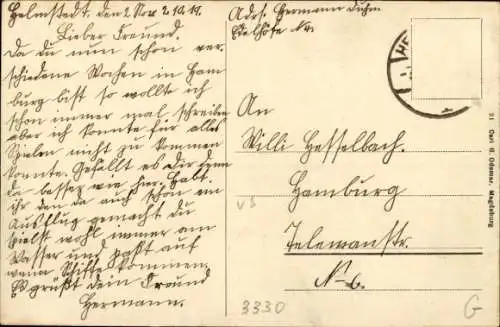 Helmstedt, den 2 Nov. 2.10.19.
Lieber Freund.
Da du nun schon ver-
schiedene Wochen in Ham
burg bist so wollte ich
schon immer mal schreiben
aber ich konnte für alles
Spielen nicht zu kommen
konnte. Gefällt es dir denn
da besser wie hier. Habt
ihr den da auch schon ein
Ausflug gemacht du
spielst wohl immer am
Wasser und paßt auf
wenn Schiffe kommen.
Es grüßt dein Freund
Hermann.
Adrs. Hermann
Edelhöfe No 4.
An
Willi Hesselbach.
Hamburg
Telemanstr.
No 6.
V3
3330
G
HE
21 Carl G. Odemar, Magdeburg